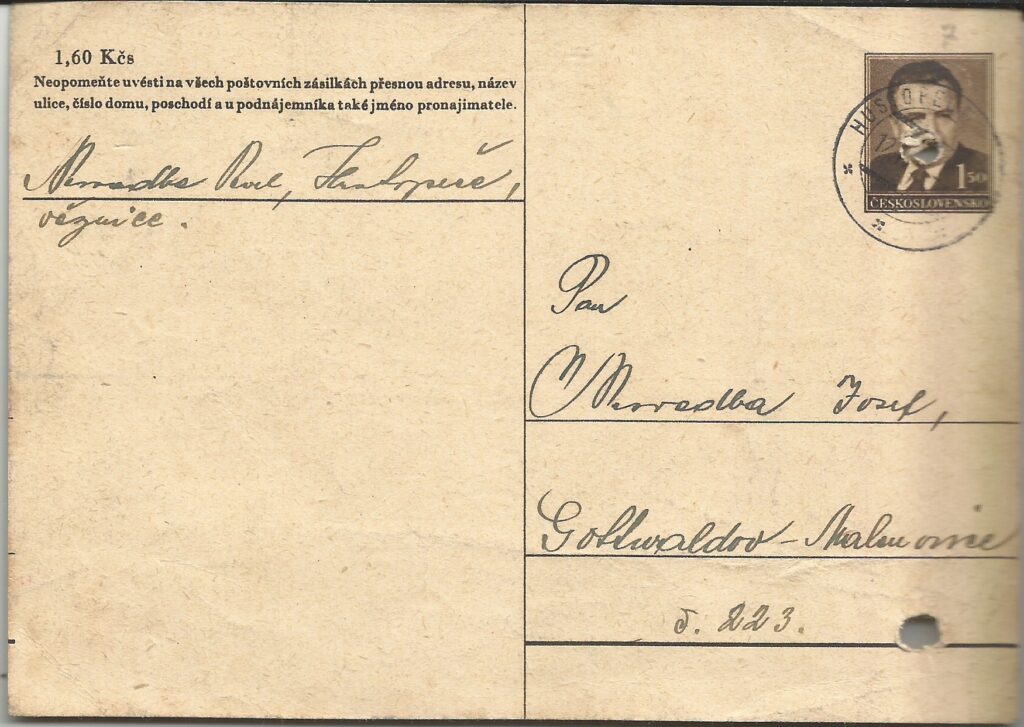 1,60 Kčs
Neopomeňte uvésti na všech poštovních zásilkách přesnou adresu, název
ulice, číslo domu, poschodí a u podnájemníka také jméno pronajimatele.
Nevradba Pavel, Hustopeče,
věznice.
HUSTOPE
150
ČESKOSLOVENSKO
Pan
Nevradba Josef,
Gottwaldov - Malenovice
č. 223.